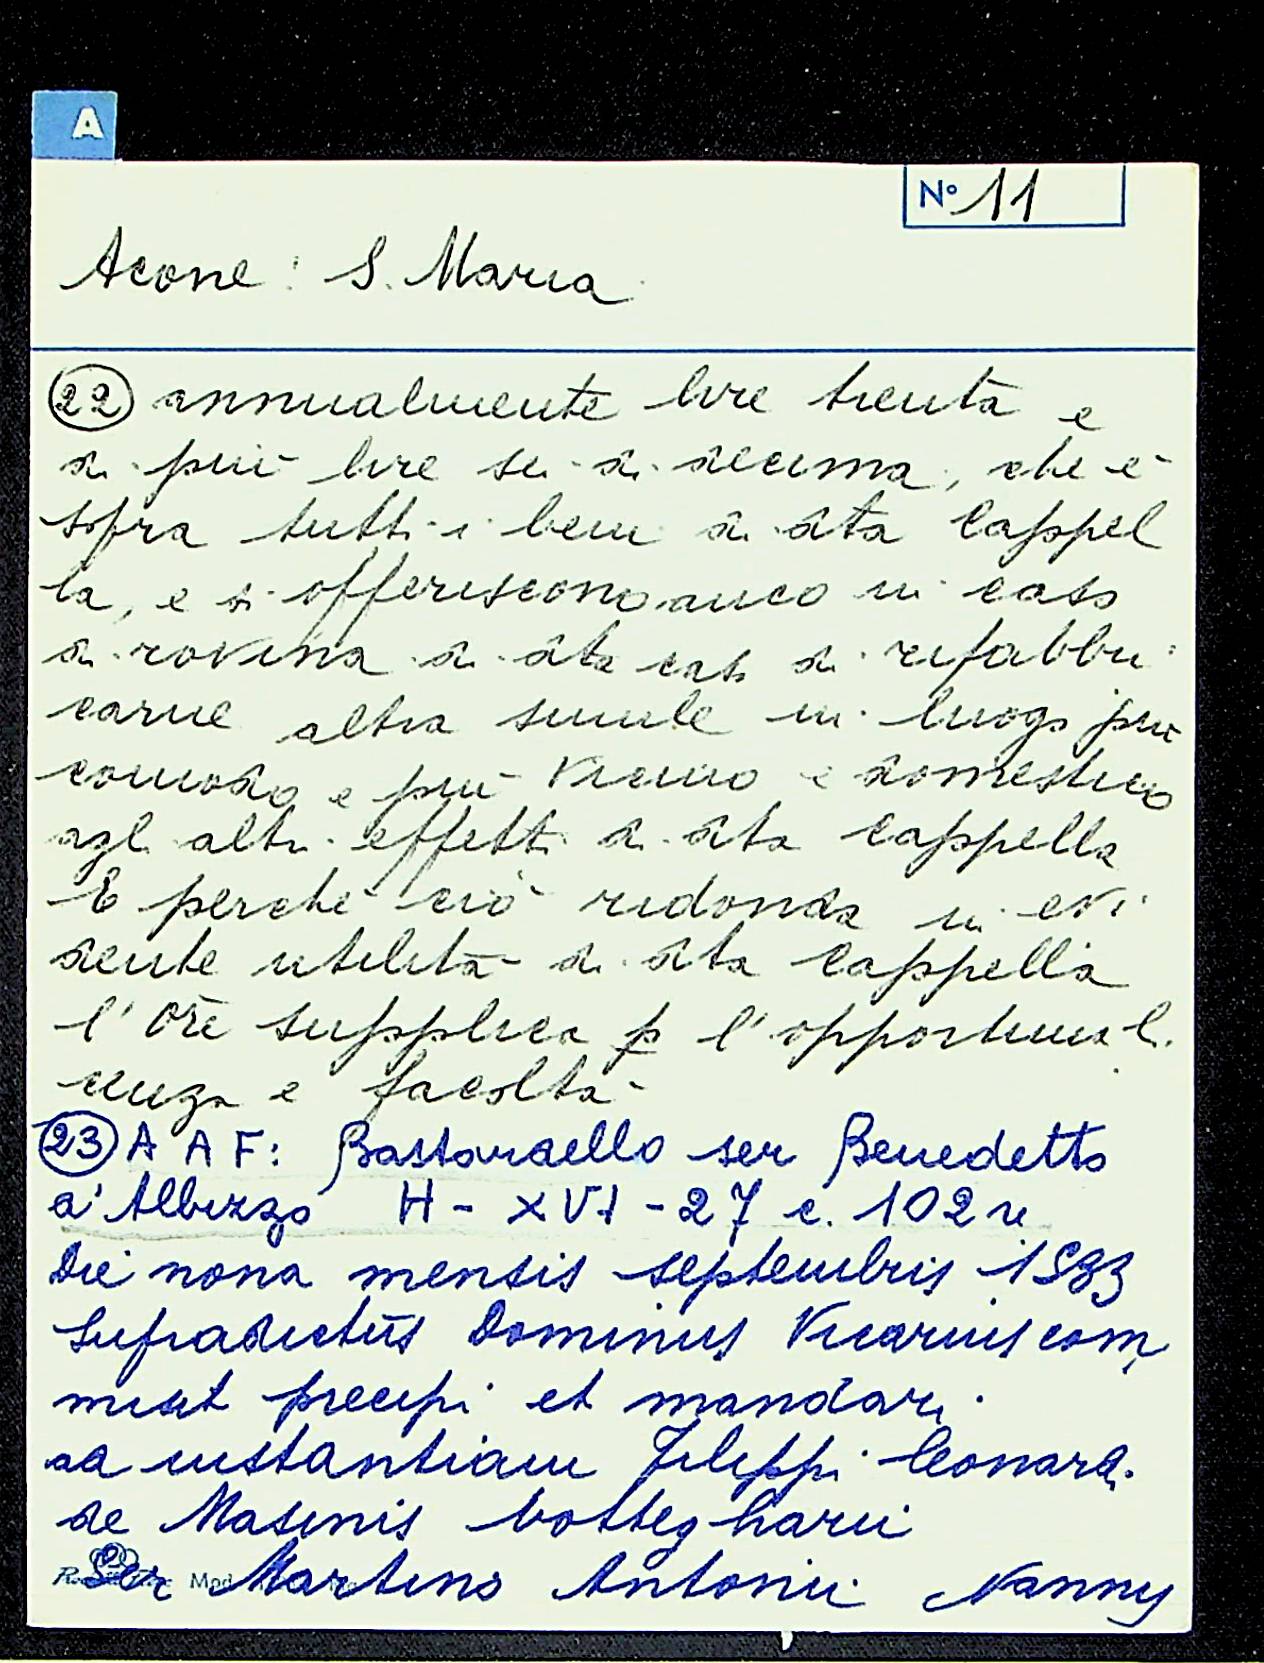 A
N° 11
Acone: S. Maria
22 annualmente lire trenta e
di più lire sei di decima, che è
sopra tutti i beni di dta Cappel
la, e si offeriscono anco in caso
di rovina di dta casa di rifabbri
carne altra simile in luogo più
comodo e più vicino e domestico
agli altri effetti di dta cappella
E perché ciò ridonda in evi
dente utilità di dta Cappella
l'Ore supplica p l'opportuna li
cenza e facoltà
23 A A F: Bastardello ser Benedetto
d'Albizzo H - XVI - 27 c. 102 r
Die nona mensis septembris 1533
Supradictus Dominus Vicarius com
misit precipi et mandari
ad instantiam Filippi Leonardi
de Masinis bottegharii
Ser Martino Antonii Nanny